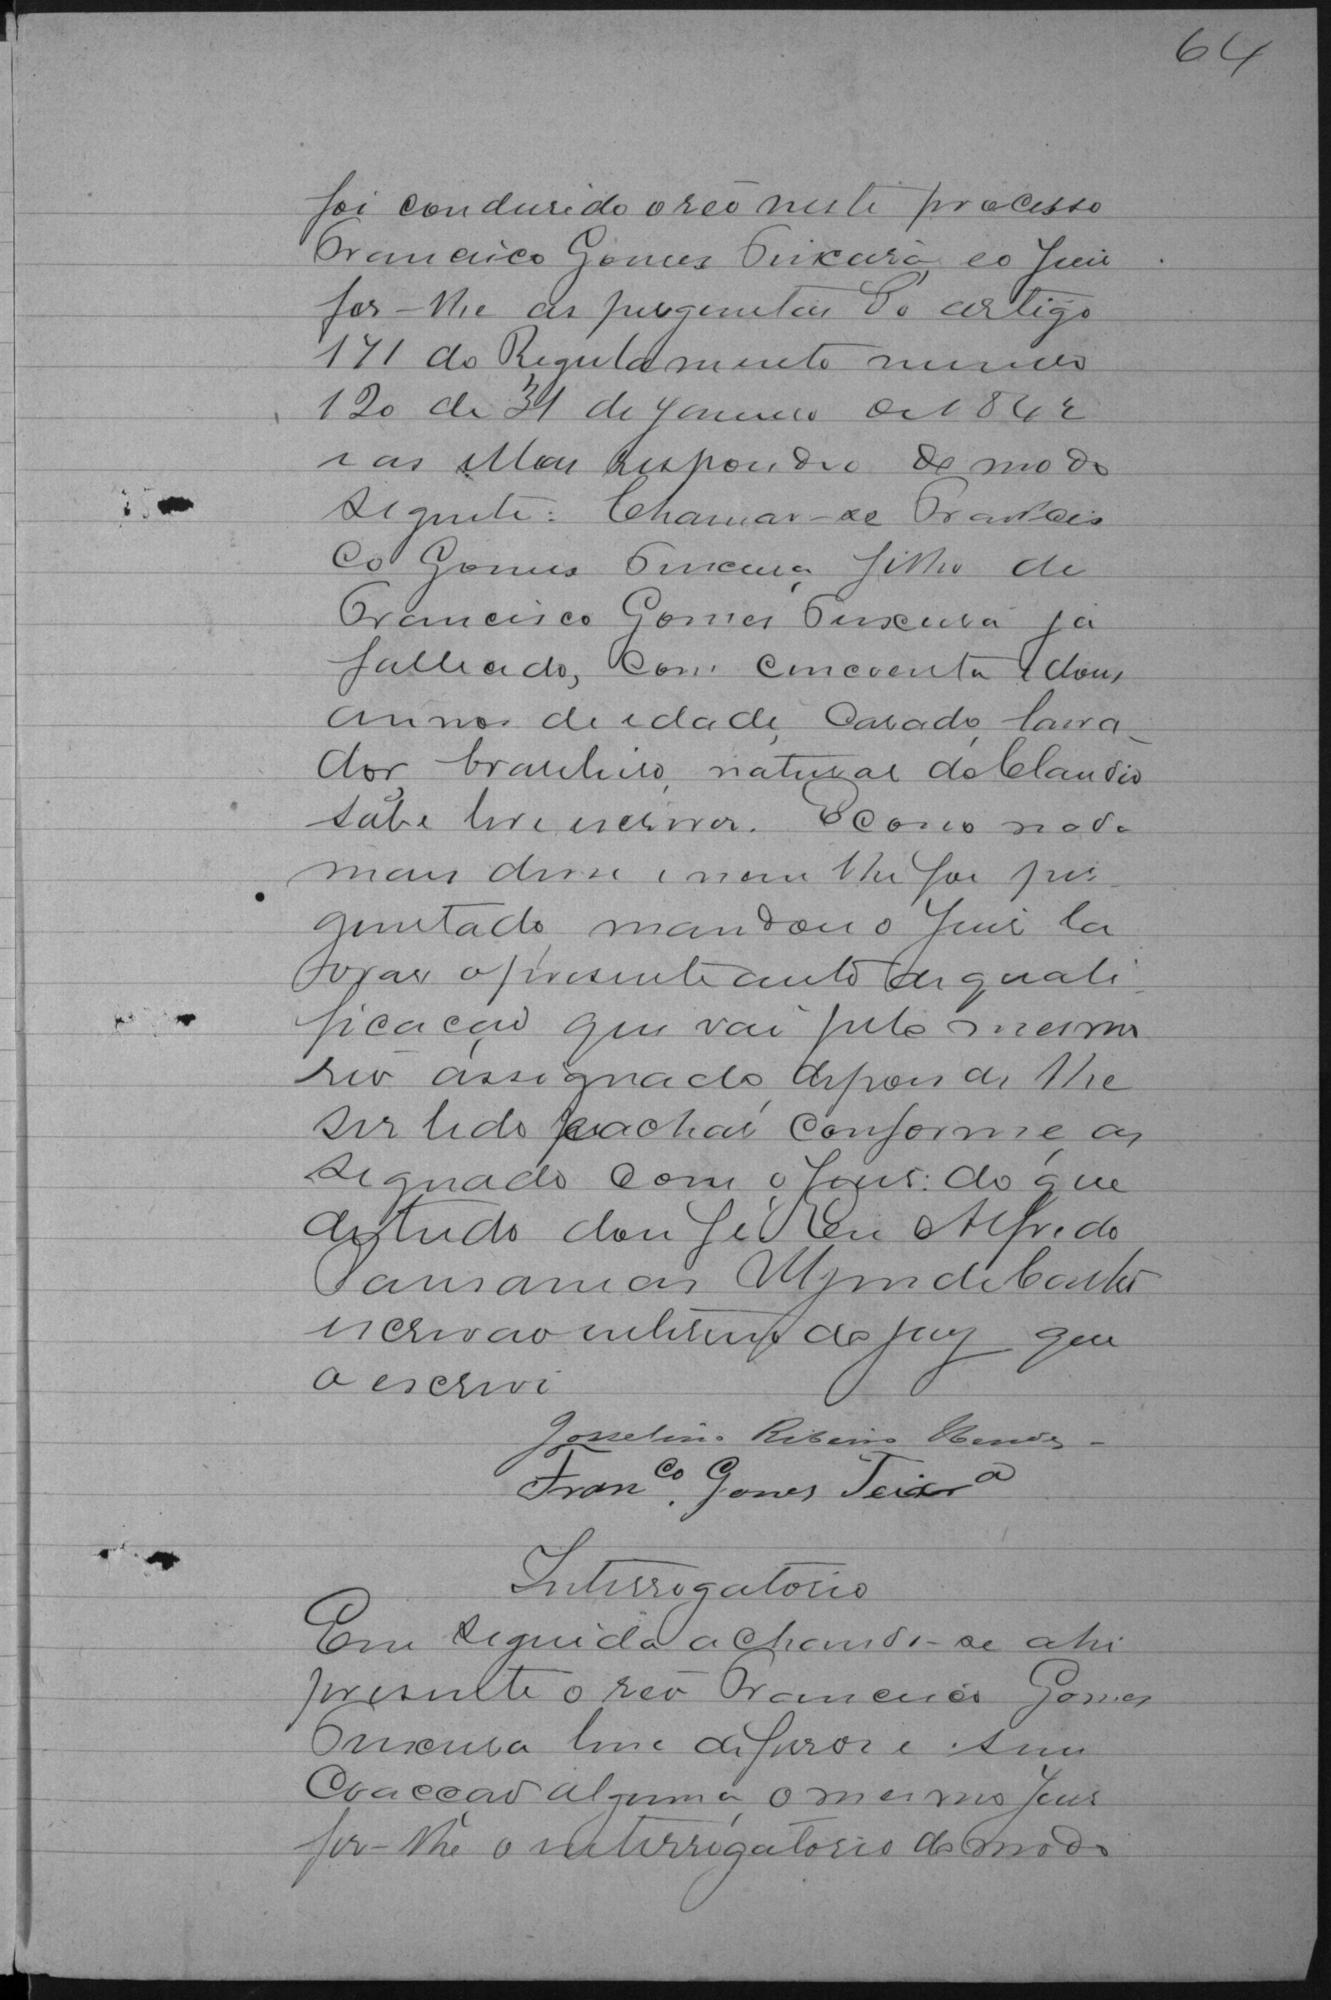 64
foi condusido o reo neste processo
Francisco Gomes Teixeira, e o Juiz
fes-lhe as perguntas do artigo
171 do Regulamento numero
120 de 31 de Janeiro de 1842
e as ellas respondeo do modo
seguinte: Chamar-se Francis
co Gomes Teixeira, filho de
Francisco Gomes Teixeira já
fallecido, com cincoenta e dous
annos de idade, casado, lavra-
dor, brasileiro, natural do Claudio
sabe ler e escrever. E como nada
mais disse e nem lhe foi per-
guntado, mandou o Juiz la
vrar o presente auto de quali-
ficação que vai pelo mesmo
reo assignado, depois de lhe
ser lido e achar conforme, as
signado com o Juiz: do que
de tudo dou fé. Eu Alfredo
Pausanias de Castro
escrivão interino do jury que
o escrevi
Josselino Ribeiro Mendes
Fran.co Gomes Teixeira
Interrogatorio
Em seguida achando-se ahi
presente o reo Francisco Gomes
Teixeira livre de ferros e sem
coacção alguma, o mesmo Juiz
fez-lhe o interrogatorio do modo